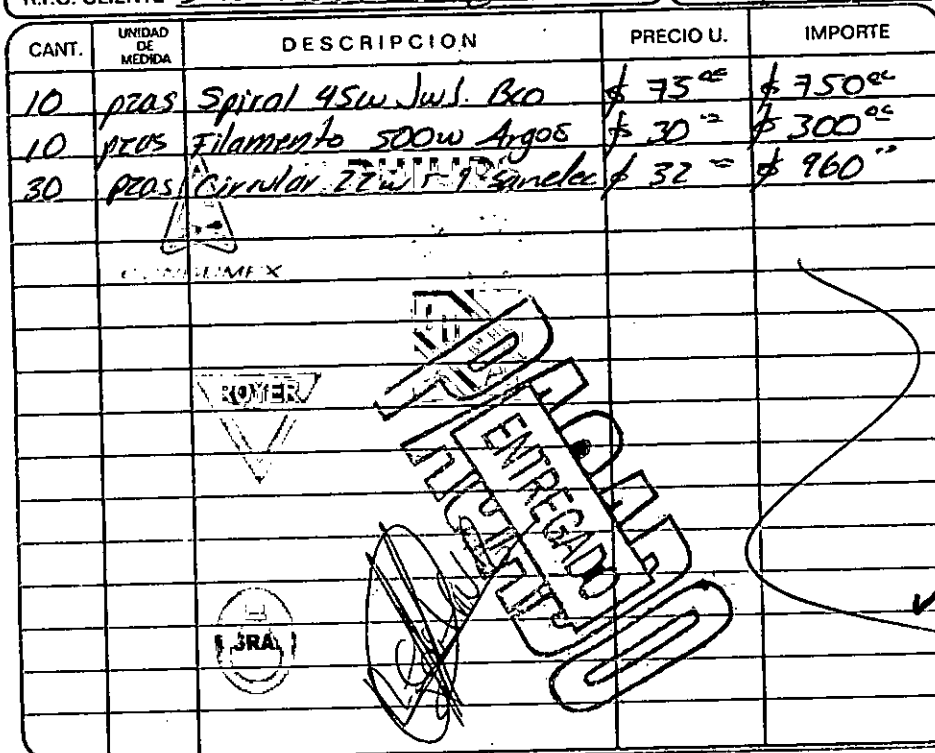 R.F.C. CLIENTE
CANT. UNIDAD DE MEDIDA DESCRIPCION PRECIO U. IMPORTE
10 pzas Spiral 45w Jwj. Bco $ 75 $ 750
10 pzas Filamento 500w Argos $ 30 $ 300
30 pzas Circular 22w T-9 Sanelec $ 32 $ 960
PHILIPS
CONDUMEX
ROYER
ENTREGADO